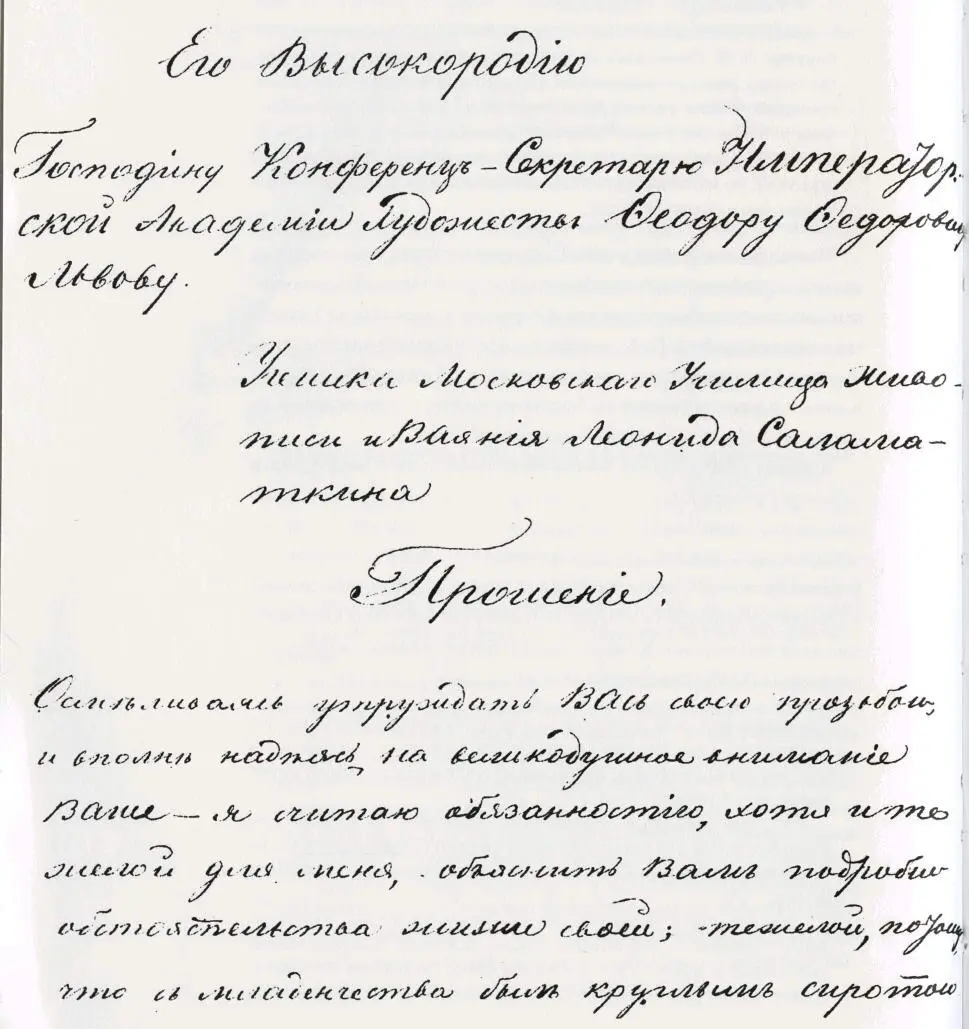 Его Высокородію
Господину Конференцъ-Секретарю Император-
ской Академіи Художествъ Ѳеодору Ѳедоровичу
Львову.
Ученика Московскаго Училища живо-
писи и Ваянія Леонида Саламa-
ткина
Прошеніе.
Осмѣливаясь утруждать Васъ своею прозьбою,
и вполнѣ надѣясь, на великодушное вниманіе
Ваше — я считаю обязанностію, хотя и тя
желой для меня, объяснить Вамъ подробно
обстоятельства жизни своей; тежелой, потому,
что съ младенчества былъ круглымъ сиротою